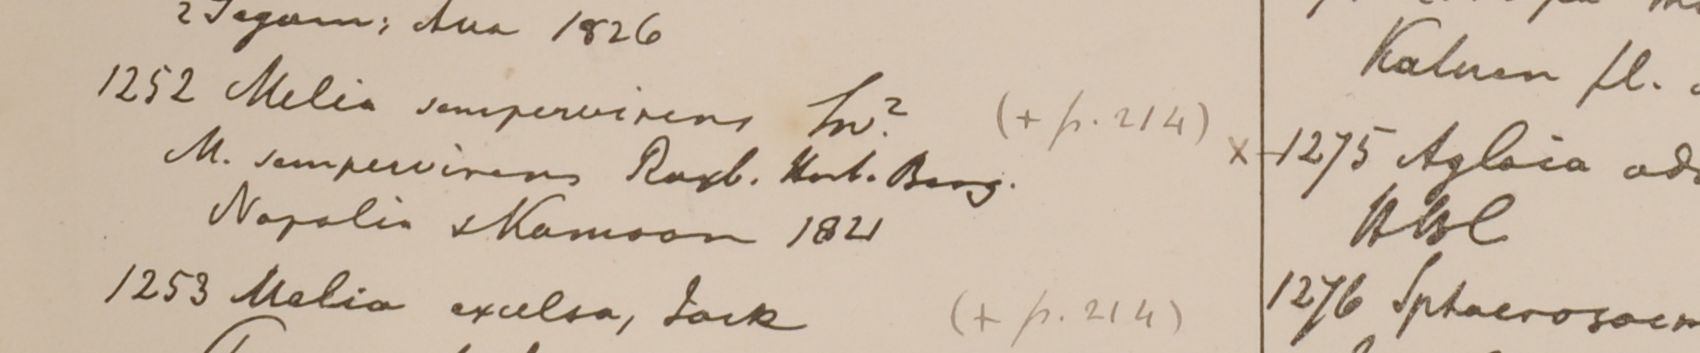 2 Segam; Ava 1826
1252 Melia sempervirens Sw? (+ p. 214)
M. sempervirens Roxb. Hort. Beng.
Napalia & Kamoon 1821
1253 Melia excelsa, Jack (+ p. 214)
fl.
x 1275 Aglaia odo
HBC
1276 Sphaerosacm